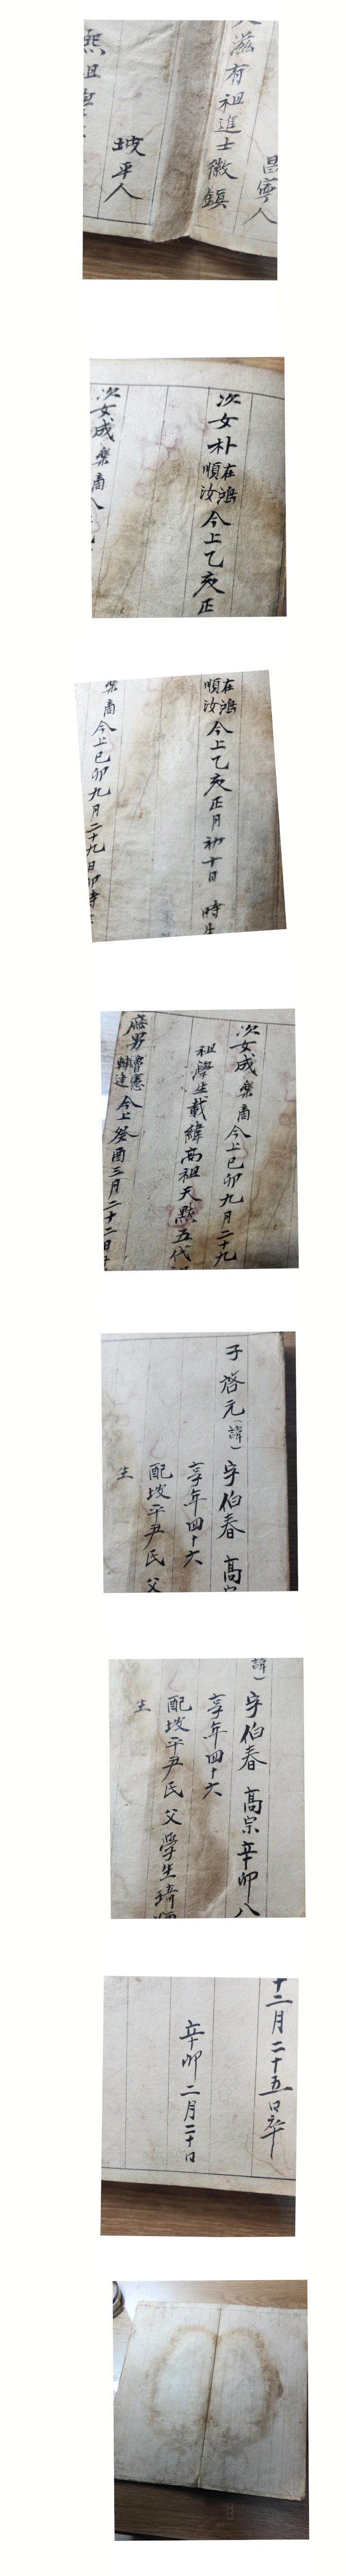 滋有祖進士徽鎭
昌寧人
熙祖
坡平人
次女朴在鴻
順汝
今上乙亥正
次女成樂啇
在鴻
順汝
今上乙亥正月初十日 時生
樂啇今上己卯九月二十九日卯時生
次女成樂啇今上己卯九月二十九
祖學生載緯高祖天默五代
庶男魯憲
轉達
今上癸酉三月二十二日
子啓元(諱)字伯春 高宗
享年四十六
配坡平尹氏 父
生
諱)字伯春 高宗辛卯八
享年四十六
配坡平尹氏 父學生琦
生
十二月二十五日卒
辛卯二月二十日